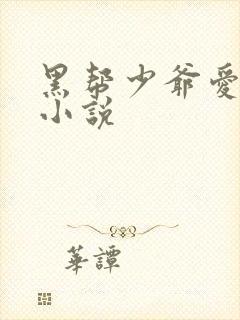 黑帮少爷愛
小說
華譚